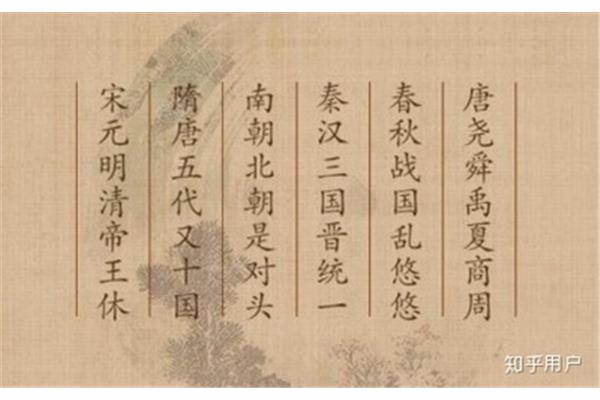 唐尧舜禹夏商周
春秋战国乱悠悠
秦汉三国晋统一
南朝北朝是对头
隋唐五代又十国
宋元明清帝王休
知乎用户